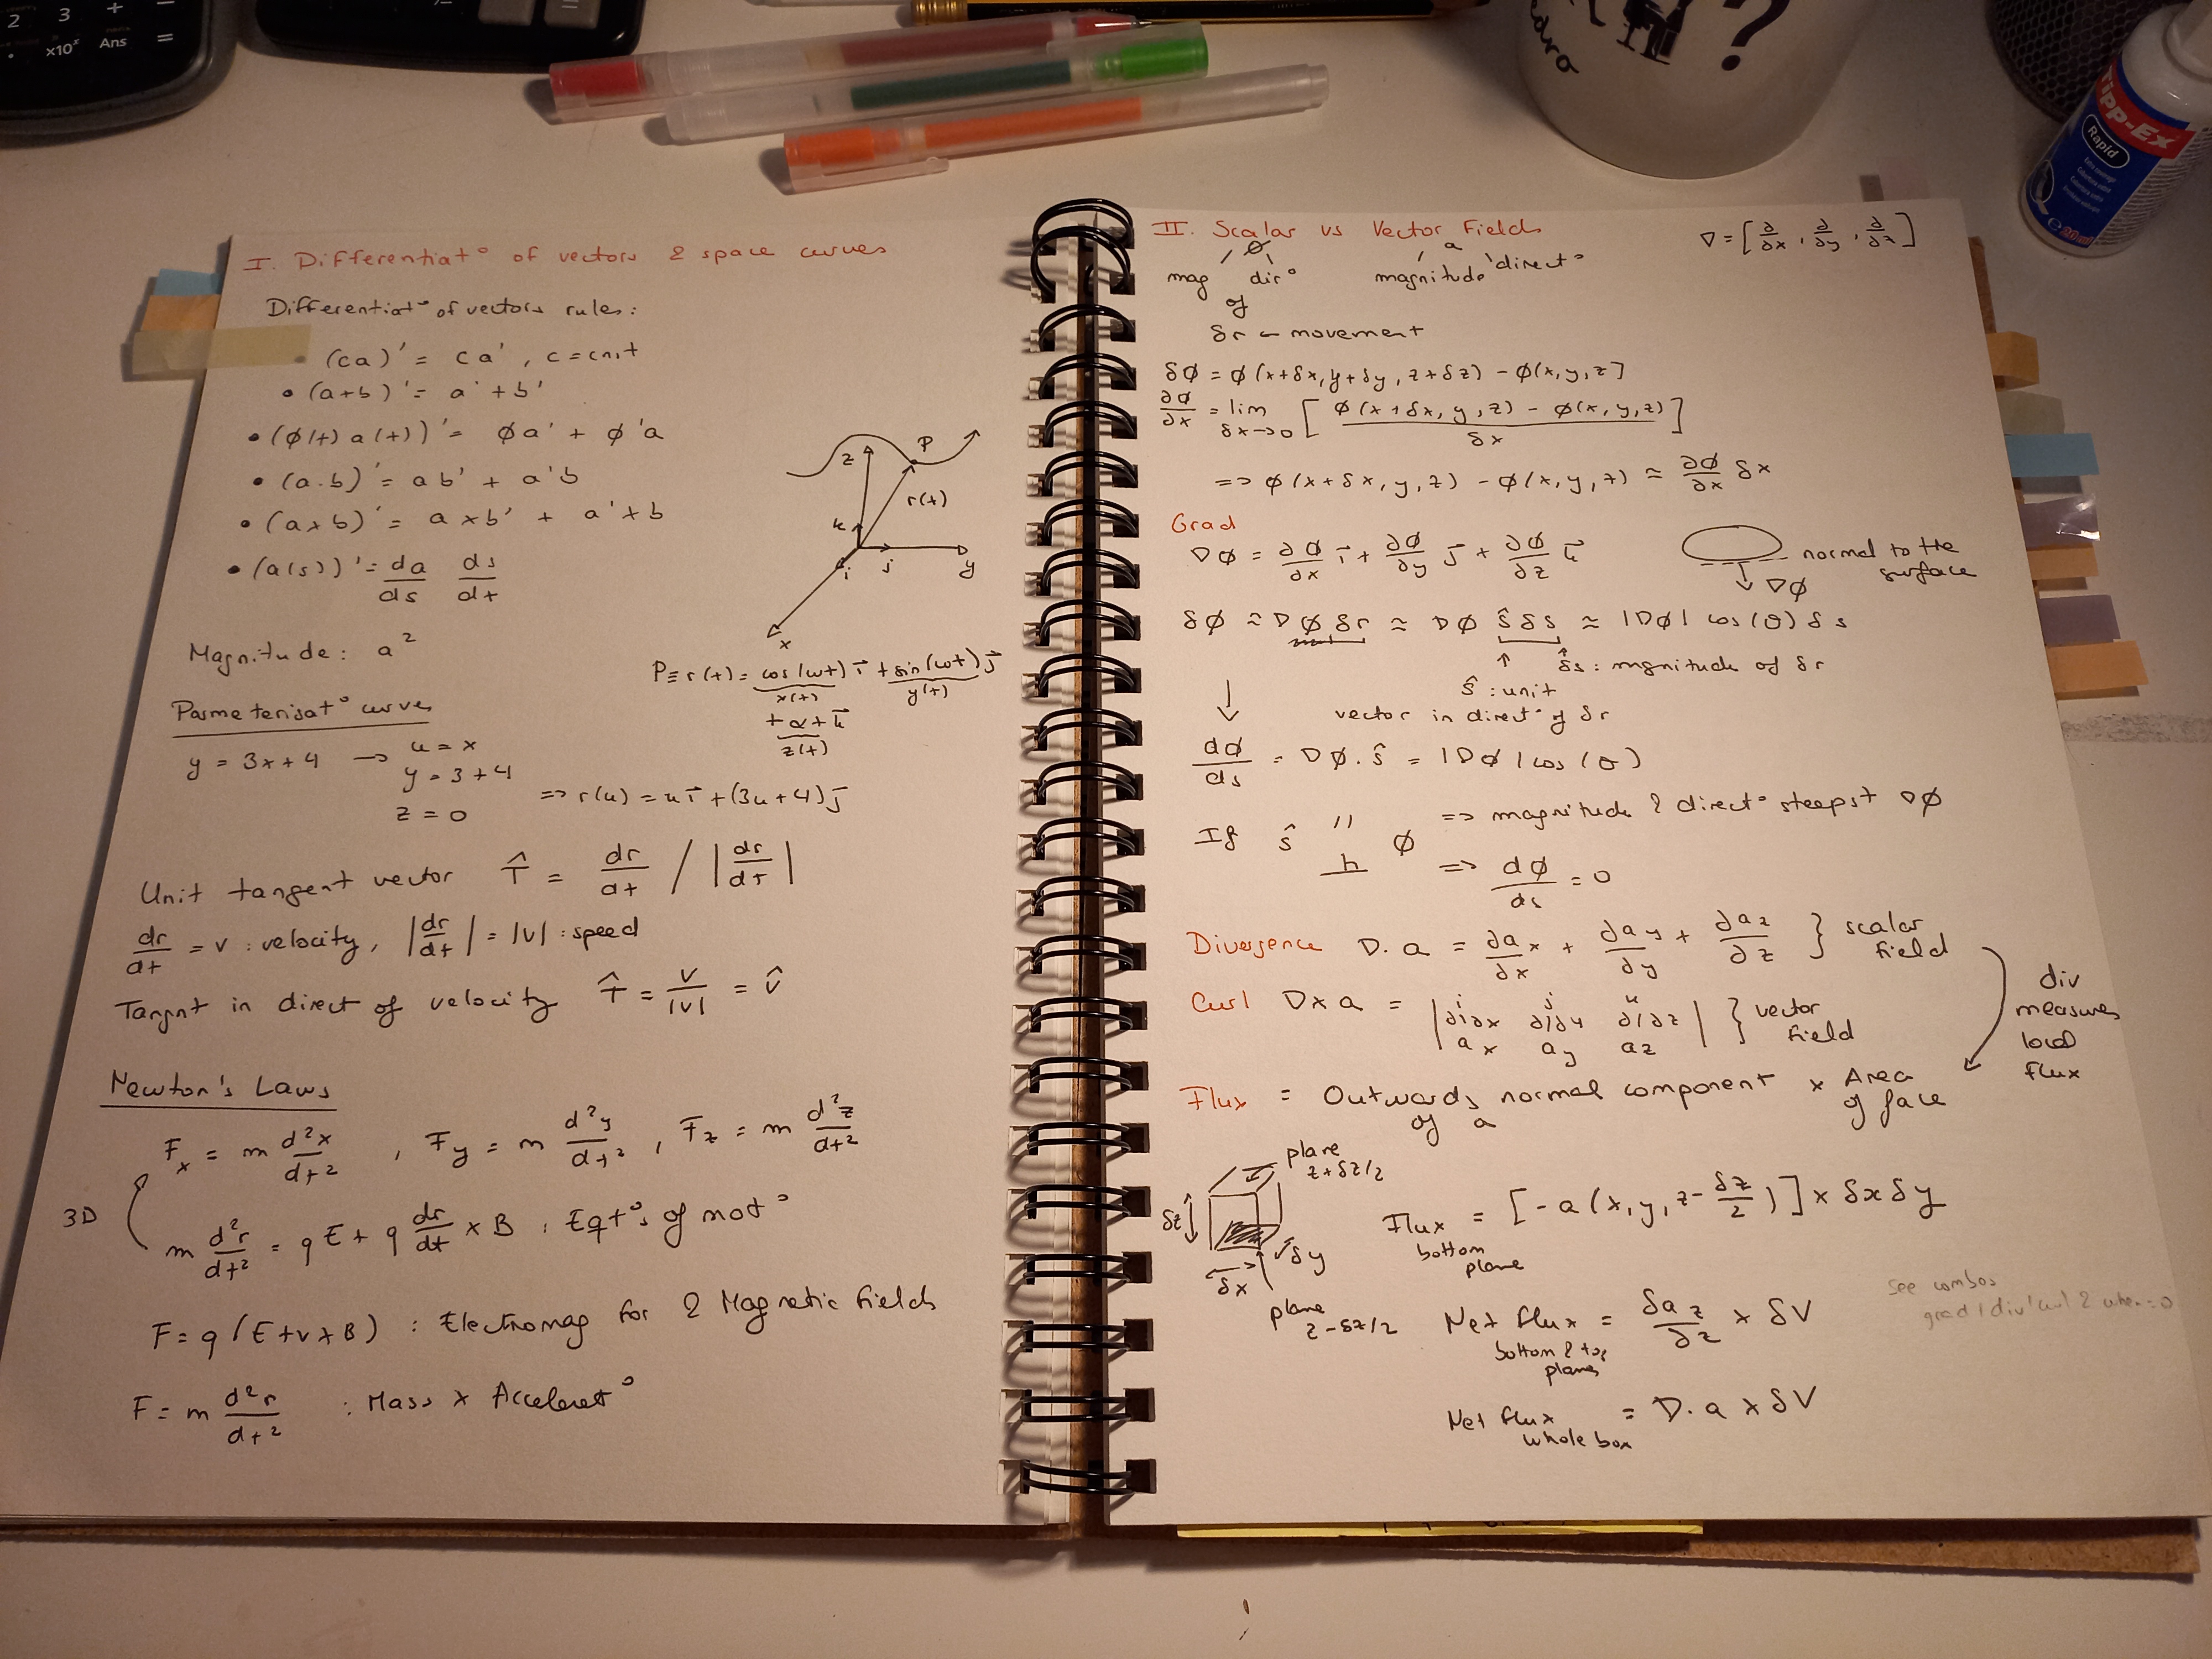 I. Differentiat° of vectors & space curves
Differentiat° of vectors rules:
• (ca)' = ca', c = cnst
• (a+b)' = a' + b'
• (φ(t) a(t))' = φa' + φ'a
• (a.b)' = ab' + a'b
• (a×b)' = a×b' + a'×b
• (a(s))' = da/ds ds/dt
Magnitude: a²
z
P
r(t)
k
i
j
x
y
P≡r(t) = cos(ωt) i + sin(ωt) j
x(t) y(t)
+ αt k
z(t)
Parmeterisat° curves
y = 3x+4 → u = x
y = 3+4
z = 0
⇒ r(u) = ui + (3u+4)j
Unit tangent vector T̂ = dr/dt / |dr/dt|
dr/dt = v : velocity, |dr/dt| = |v| : speed
Tangnt in direct of velocity T̂ = v/|v| = v̂
Newton's Laws
Fx = m d²x/dt², Fy = m d²y/dt², Fz = m d²z/dt²
3D
m d²r/dt² = qE + q dr/dt × B : Eqt°s of mot°
F = q(E+v×B) : Electromag for & Magnetic fields
F = m d²r/dt² : Mass × Accelerat°
II. Scalar vs Vector Fields
∇ = [∂/∂x, ∂/∂y, ∂/∂z]
φ a
mag dir° magnitude direct°
δr ← movement
δφ = φ(x+δx, y+δy, z+δz) - φ(x,y,z)
∂φ/∂x = lim δx→0 [φ(x+δx,y,z) - φ(x,y,z) / δx]
⇒ φ(x+δx,y,z) - φ(x,y,z) ≈ ∂φ/∂x δx
Grad
∇φ = ∂φ/∂x i + ∂φ/∂y j + ∂φ/∂z k
normal to the surface
∇φ
δφ ≈ ∇φ δr ≈ ∇φ ŝδs ≈ |∇φ| cos(θ) δs
ŝ : unit vector in direct° of δr
δs : magnitude of δr
dφ/ds = ∇φ.ŝ = |∇φ| cos(θ)
⇒ magnitude & direct° steepst ∇φ
If ŝ // φ ⇒ dφ/ds = 0
Divergence ∇.a = ∂ax/∂x + ∂ay/∂y + ∂az/∂z } scalar field
Curl ∇×a = | i j k
∂/∂x ∂/∂y ∂/∂z
ax ay az | } vector field
div measures
flux
Flux = Outwards normal component × Area
of a of face
plane z+δz/2
δz
δx
δy
plane z-δz/2
Flux bottom plane = [-a(x,y,z-δz/2)] × δxδy
Net flux bottom & top planes = δaz/δz × δV
Net flux whole box = ∇.a × δV
see combos
grad/div/curl & when = 0
2 3 +
x10ˣ Ans =
Tipp-Ex
Rapid
20 ml